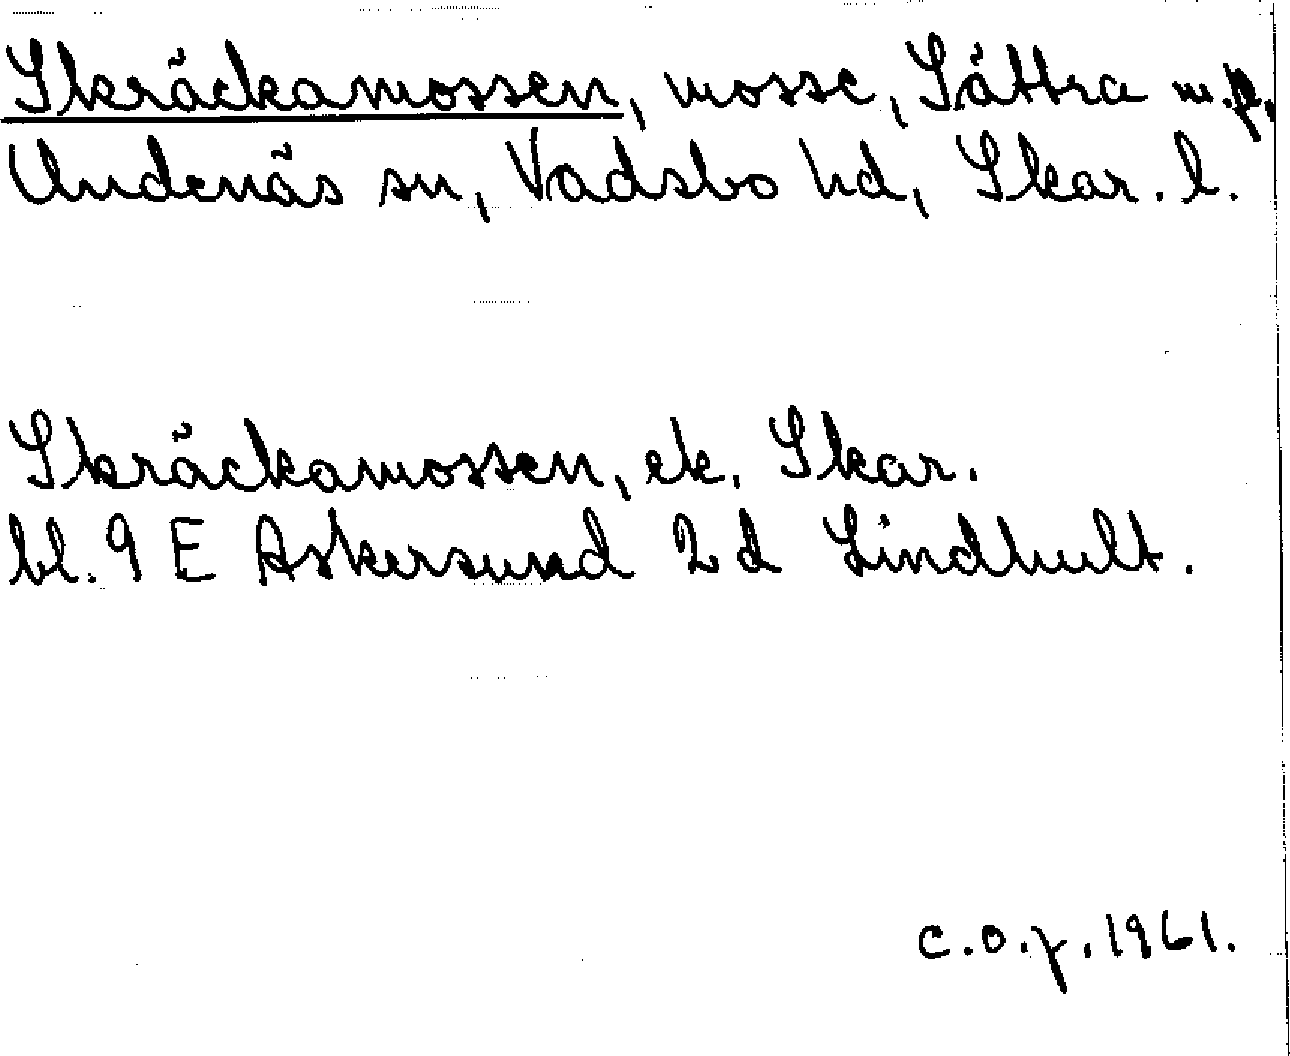 Skräckamossen, mosse, Sättra m.fl.
Undenäs sn, Vadsbo hd, Skar. l.
Skräckamossen, ek. Skar.
bl. 9 E Askersund 2 d Lindhult.
c.o.f. 1961.